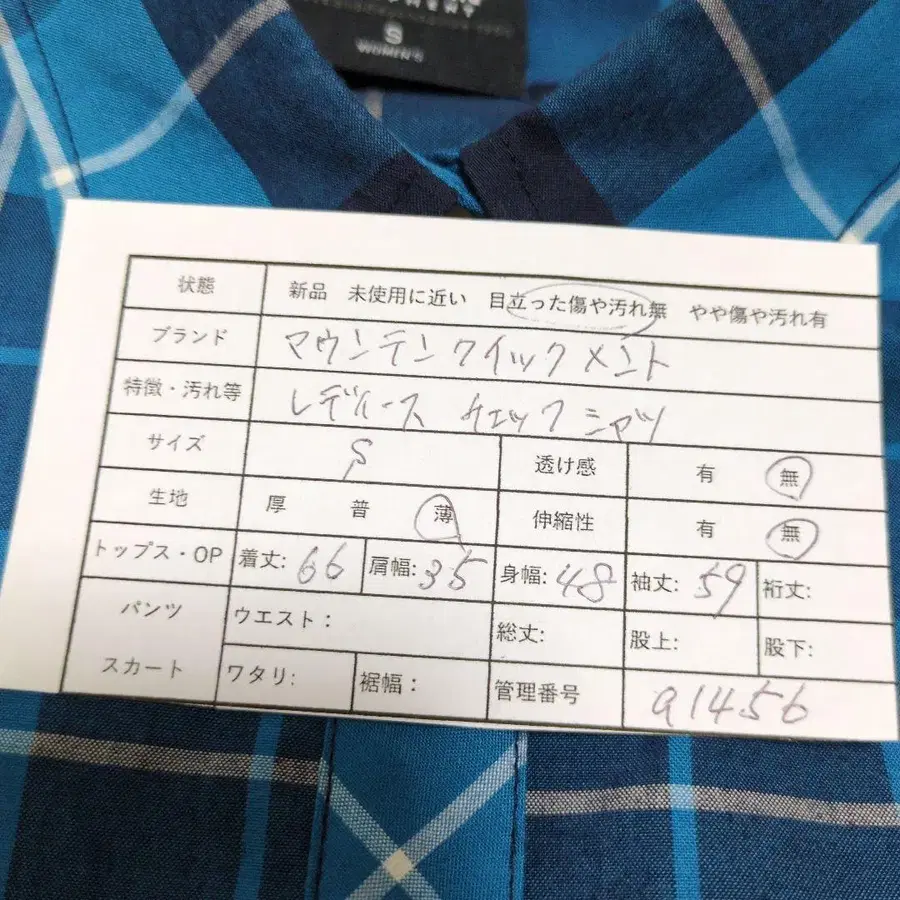 PMENT
S
WOMEN'S
状態 新品 未使用に近い 目立った傷や汚れ無 やや傷や汚れ有
ブランド マウンテンクイックメント
特徴・汚れ等 レディース チェックシャツ
サイズ S 透け感 有 無
生地 厚 普 薄 伸縮性 有 無
トップス・OP 着丈: 66 肩幅: 35 身幅: 48 袖丈: 59 裄丈:
パンツ ウエスト: 総丈: 股上: 股下:
スカート ワタリ: 裾幅: 管理番号 a1456